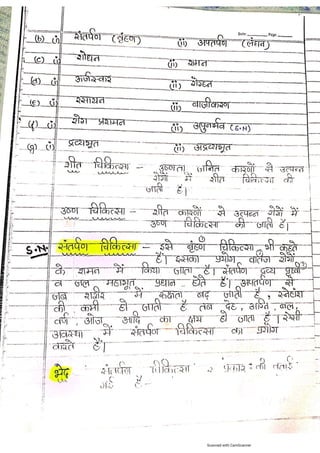 Date ______ Page ______
(b) (i) संतर्पण (बृंहण) (ii) अपतर्पण (लंघन)
(c) (i) शोधन (ii) शमन
(d) (i) ऊर्जस्कर (ii) रोगघ्न
(e) (i) रसायन (ii) वाजीकरण
(f) (i) रोग प्रशमन (ii) अपुनर्भव (S.N)
(g) (i) द्रव्यभूत (ii) अद्रव्यभूत
शीत चिकित्सा - उष्णता जनित कारणों से उत्पन्न
रोगों में शीत चिकित्सा की
जाती है।
उष्ण चिकित्सा - शीत कारणों से उत्पन्न रोगों में
उष्ण चिकित्सा की जाती है।
S.N संतर्पण चिकित्सा - इसे बृंहण चिकित्सा भी कहते
हैं। इसका प्रयोग वातज रोगों
के शमन में किया जाता है। संतर्पण द्रव्य पृथ्वी
व जल महाभूत प्रधान होते हैं। अपतर्पण से
जब शरीर में रुक्षता बढ़ जाती है, स्नेहांश
की कमी हो जाती है तब देह, अग्नि, बल,
वर्ण, ओज आदि का क्षय हो जाता है। ऐसी
अवस्था में संतर्पण चिकित्सा का प्रयोग
करते हैं।
भेद संतर्पण चिकित्सा 2 प्रकार की बताई
गई है -
Scanned with CamScanner